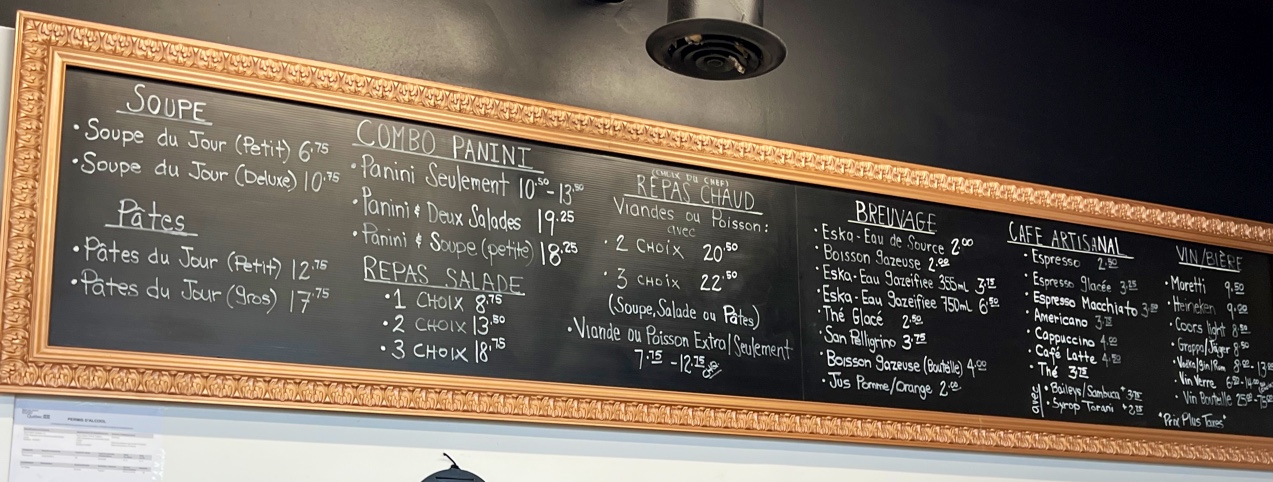 SOUPE
• Soupe du Jour (Petit) 6.75
• Soupe du Jour (Deluxe) 10.75
Pâtes
• Pâtes du Jour (Petit) 12.75
• Pâtes du Jour (gros) 17.75
COMBO PANINI
• Panini Seulement 10.50-13.50
• Panini & Deux Salades 19.25
• Panini & Soupe (petite) 18.25
REPAS SALADE
• 1 CHOIX 8.75
• 2 CHOIX 13.50
• 3 CHOIX 18.75
(CHOIX DU CHEF)
REPAS CHAUD
Viandes ou Poisson:
avec
• 2 CHOIX 20.50
• 3 CHOIX 22.50
(Soupe, Salade ou Pâtes)
• Viande ou Poisson Extra/Seulement
7.75-12.75
BREUVAGE
• Eska-Eau de Source 2.00
• Boisson gazeuse
• Eska-Eau gazeifiee 355mL 3.75
• Eska-Eau gazeifiee 750mL 6.50
• Thé Glacé 2.50
• San Pelligrino 3.75
• Boisson gazeuse (Bouteille) 4.00
• Jus Pomme/Orange 2.00
CAFE ARTISANAL
• Espresso 2.50
• Espresso glacée 3.25
• Espresso Macchiato
• Americano
• Cappuccino 4.00
• Café Latte 4.50
• Thé 3.75
avec
• Baileys/Sambuca
• Syrop Torani
VIN/BIÈRE
• Moretti 9.50
• Heineken 9.00
• Coors light 8.50
• Grappa/Jager 8.50
• Vodka/Gin/Rum
• Vin Verre
• Vin Bouteille
*Prix Plus Taxes*
PERMIS D'ALCOOL